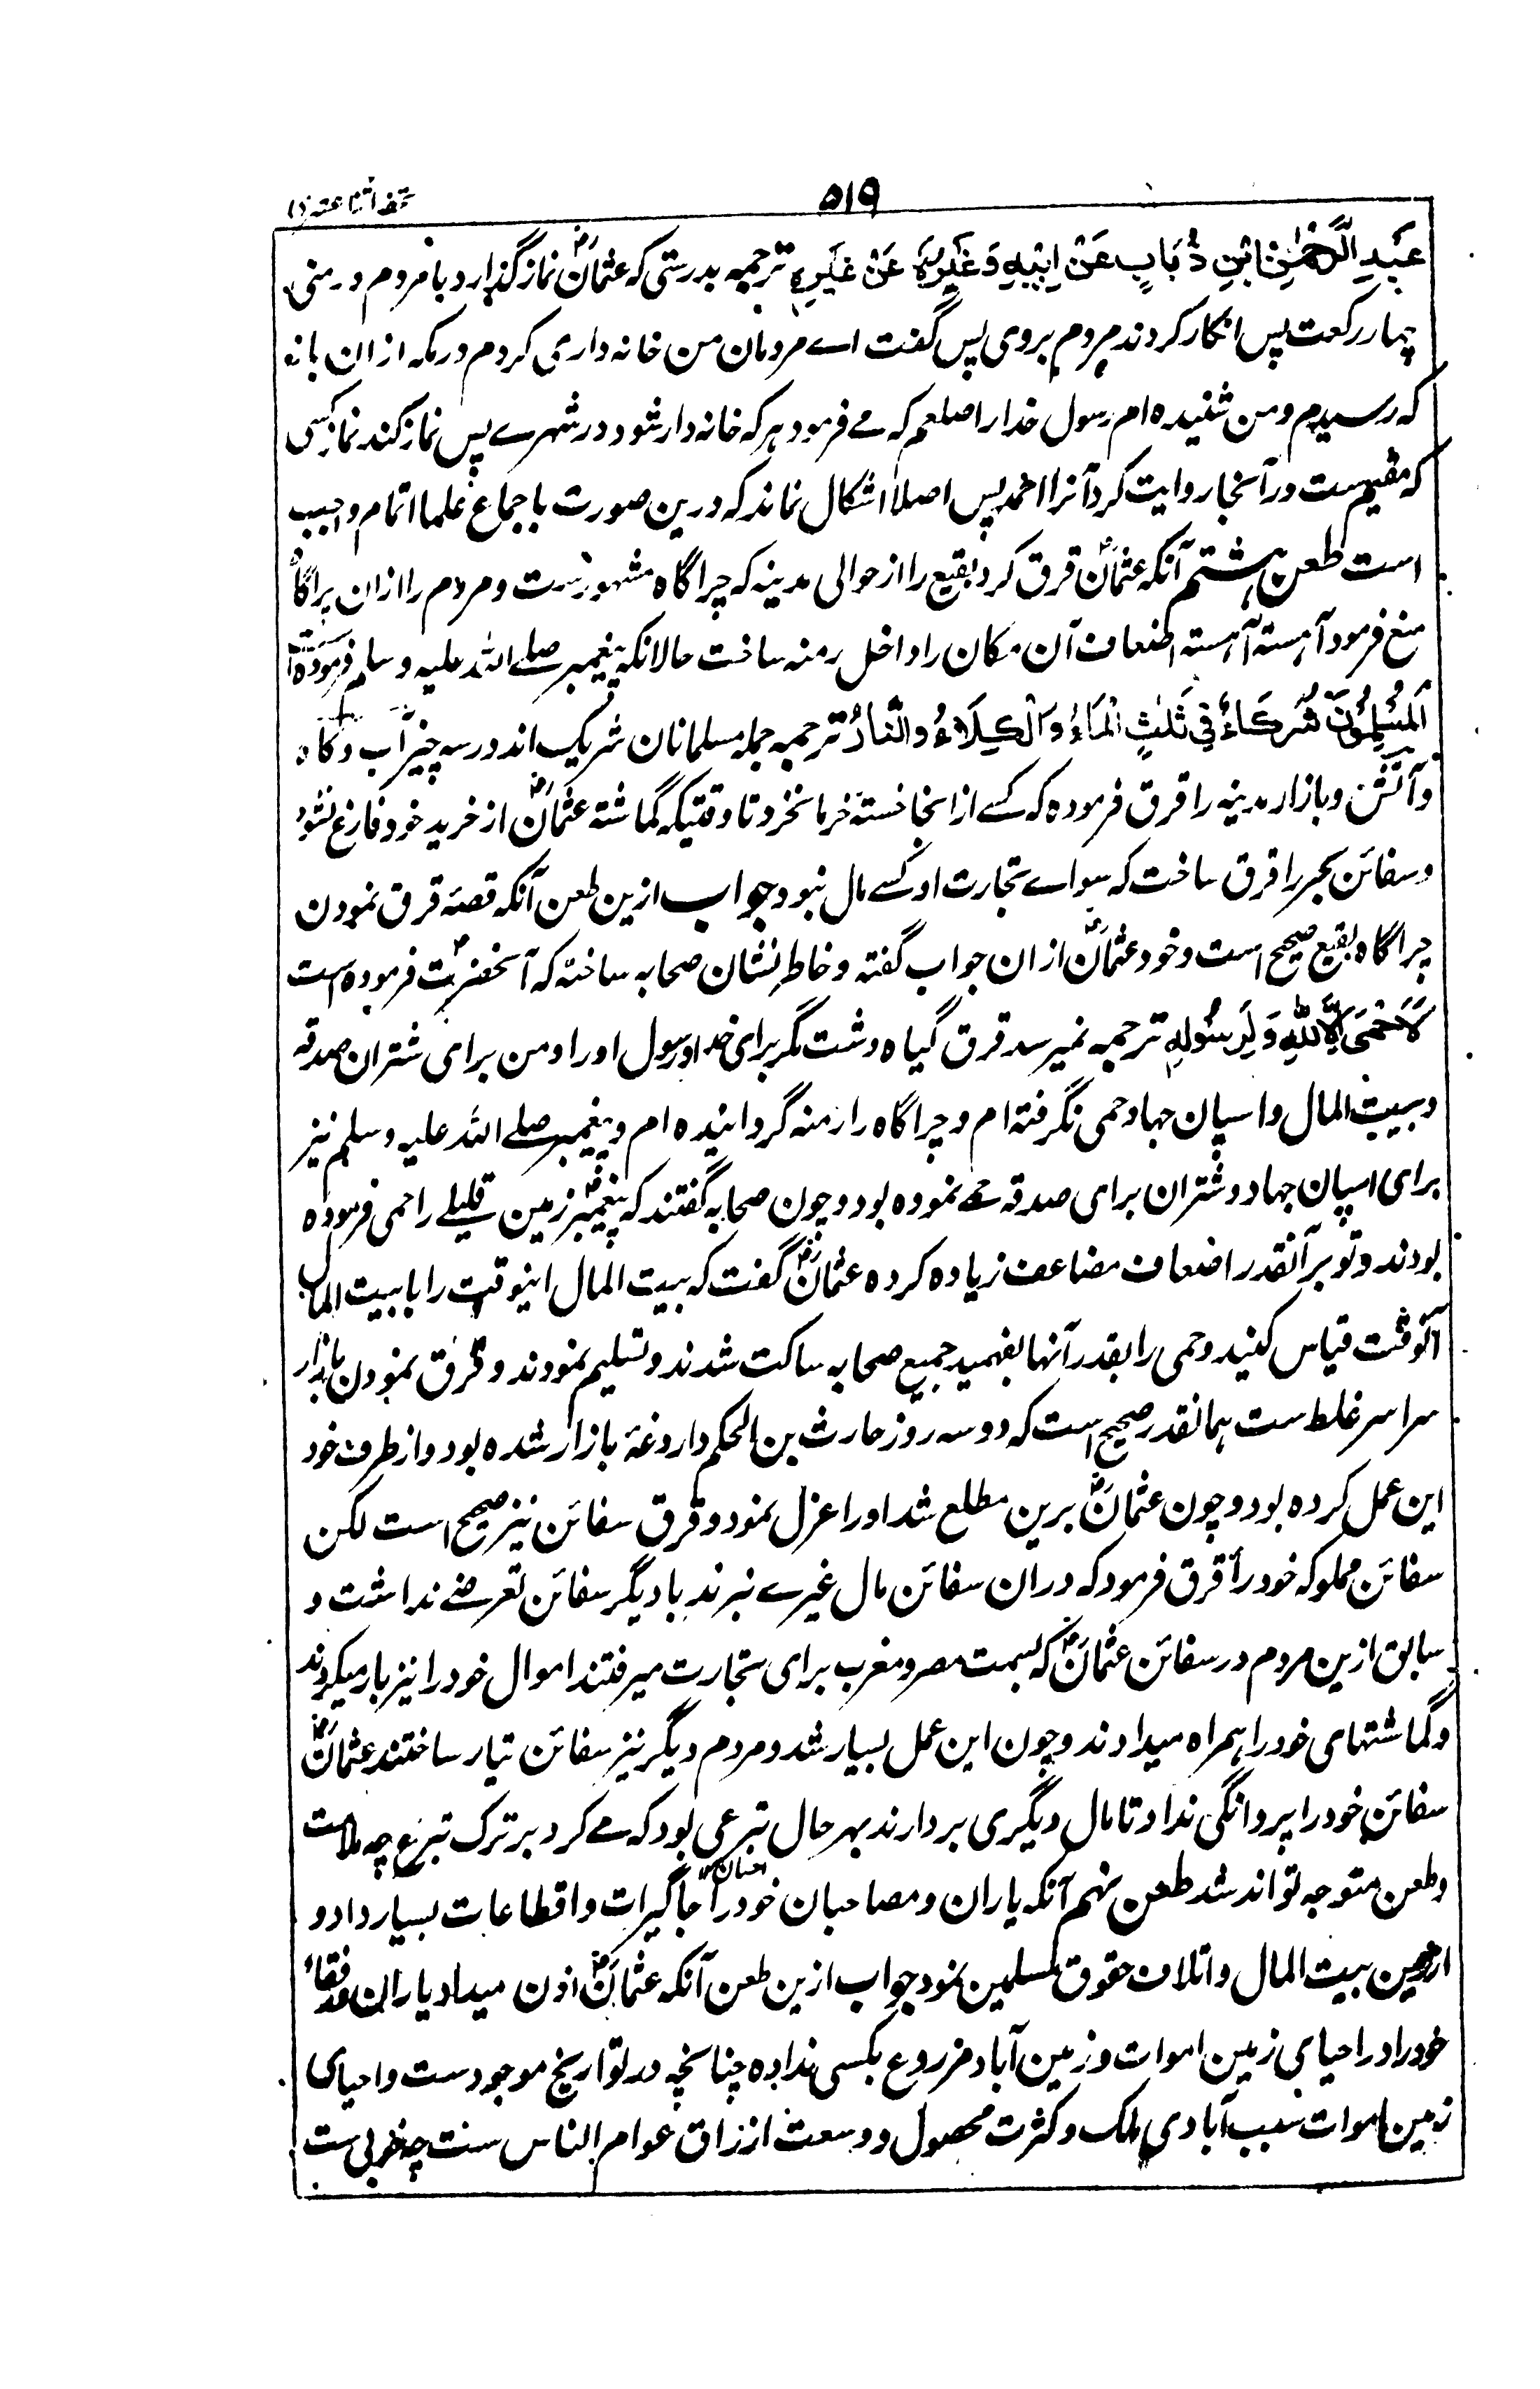 ۵۱۹
تحفه اثنا عشریه
عَبْدِ الرَّحْمٰنِ ابْنِ ذُبَابٍ عَنْ اَبِیْهِ وَغَیْرِهٖ عَنْ غَیْرِهٖ ترجمه بدرستی که عثمانؓ نماز گذارد با مردم در منی
چهار رکعت پس انکار کردند مردم بروی پس گفت اے مردمان من خانه داری کردم در مکه ازان باز
که رسیدم و من شنیده ام رسول خدا را صلعم که مے فرمود هر که خانه دار شود در شهرے پس نماز کند نماز کسی
که مقیم ست در آنجا روایت کرد آنرا احمد پس اصلا اشکال نماند که درین صورت باجماع علما اتمام واجب
است طعن هشتم آنکه عثمانؓ قرق کرد بقیع را از حوالی مدینه که چراگاه مشهور ست و مردم را ازان چراگاه
منع فرمود آهسته آهسته اضعاف آن مکان را داخل رمنه ساخت حالانکه پیغمبر صلے الله علیه و سلم فرموده
اَلْمُسْلِمُوْنَ شُرَکَاءُ فِیْ ثَلٰثٍ اَلْمَاءُ وَالْکِلَاءُ وَالنَّارُ ترجمه جمله مسلمانان شریک اند در سه چیز آب و کاه
و آتش و بازار مدینه را قرق فرموده که کسے از انجا خسته خرما نخرد تا وقتیکه گماشته عثمانؓ از خرید خود فارغ نشود
و سفائن بحر را قرق ساخت که سواے تجارت او کسے مال نبرد جواب ازین طعن آنکه قصهٔ قرق نمودن
چراگاه بقیع صحیح است و خود عثمانؓ ازان جواب گفته و خاطر نشان صحابه ساخته که آنحضرتؐ فرموده است
لَاحِمَی اِلَّا لِلّٰهِ وَلِرَسُوْلِهٖ ترجمه نمیرسد قرق گیاه دشت مگر برای خدا و رسول او را و من برای شتران صدقه
و بیت المال و اسپان جهاد حمی نگرفته ام و چراگاه را رمنه گردانیده ام و پیغمبر صلے الله علیه و سلم نیز
برای اسپان جهاد و شتران برای صدقه حمے نموده بود و چون صحابه گفتند که پیغمبرؐ زمین قلیلے را حمی فرموده
بودند و تو بر آنقدر اضعاف مضاعف زیاده کرده عثمانؓ گفت که بیت المال اینوقت را با بیت المال
آنوقت قیاس کنید و حمی را بقدر آنها بفهمید جمیع صحابه ساکت شدند و تسلیم نمودند و قرق نمودن بازار
سراسر غلط ست همانقدر صحیح است که دو سه روز حارث بن الحکم داروغهٔ بازار شده بود و از طرف خود
این عمل کرده بود و چون عثمانؓ برین مطلع شد او را عزل نمود و قرق سفائن نیز صحیح است لکن
سفائن مملوکه خود را قرق فرمود که دران سفائن مال غیرے نبرند با دیگر سفائن تعرضے نداشت و
سابق ازین مردم در سفائن عثمانؓ که بسمت مصر و مغرب برای تجارت میرفتند اموال خود را نیز بار میکردند
و گماشتهای خود را همراه میدادند و چون این عمل بسیار شد و مردم دیگر نیز سفائن تیار ساختند عثمانؓ
سفائن خود را پروانگی نداد تا مال دیگری بردارند بهر حال تبرعی بود که مے کرد بر ترک تبرع چه ملامت
و طعن متوجه تواند شد طعن نهم آنکه یاران و مصاحبان خود را جاگیرات و اقطاعات بسیار داد و
از زمین بیت المال و اتلاف حقوق مسلمین نمود جواب ازین طعن آنکه عثمانؓ اذن میداد یاران و رفقاء
خود را در احیای زمین اموات و زمین آباد مزروع بکسی نداده چنانچه در تواریخ موجود ست و احیای
زمین اموات سبب آبادی ملک و کثرت محصول و وسعت ارزاق عوام الناس ست چه خوبی ست